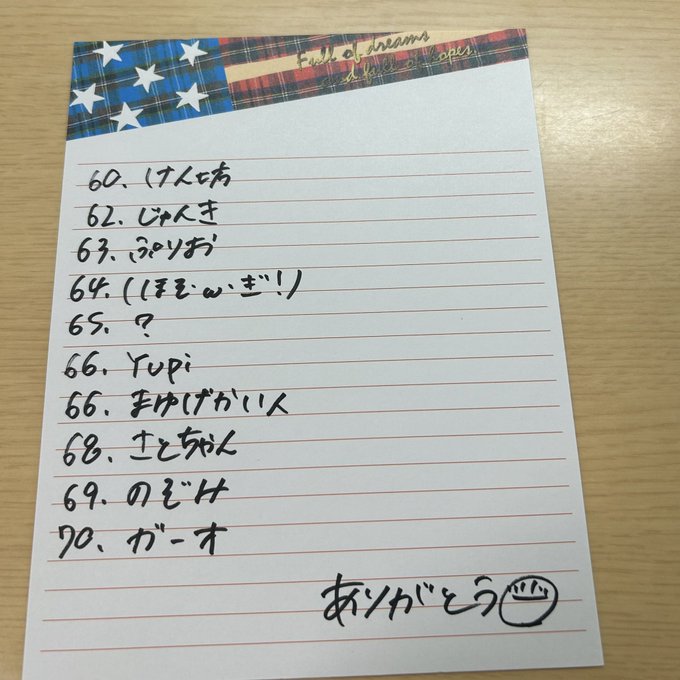 Full of dreams
and full of hopes
60. けん坊
62. じゅんき
63. ぷりお
64. (（ほぞ･ω･ぎ！）
65. ?
66. Yupi
66. まゆげかい人
68. さとちゃん
69. のぞみ
70. ガーオ
ありがとう